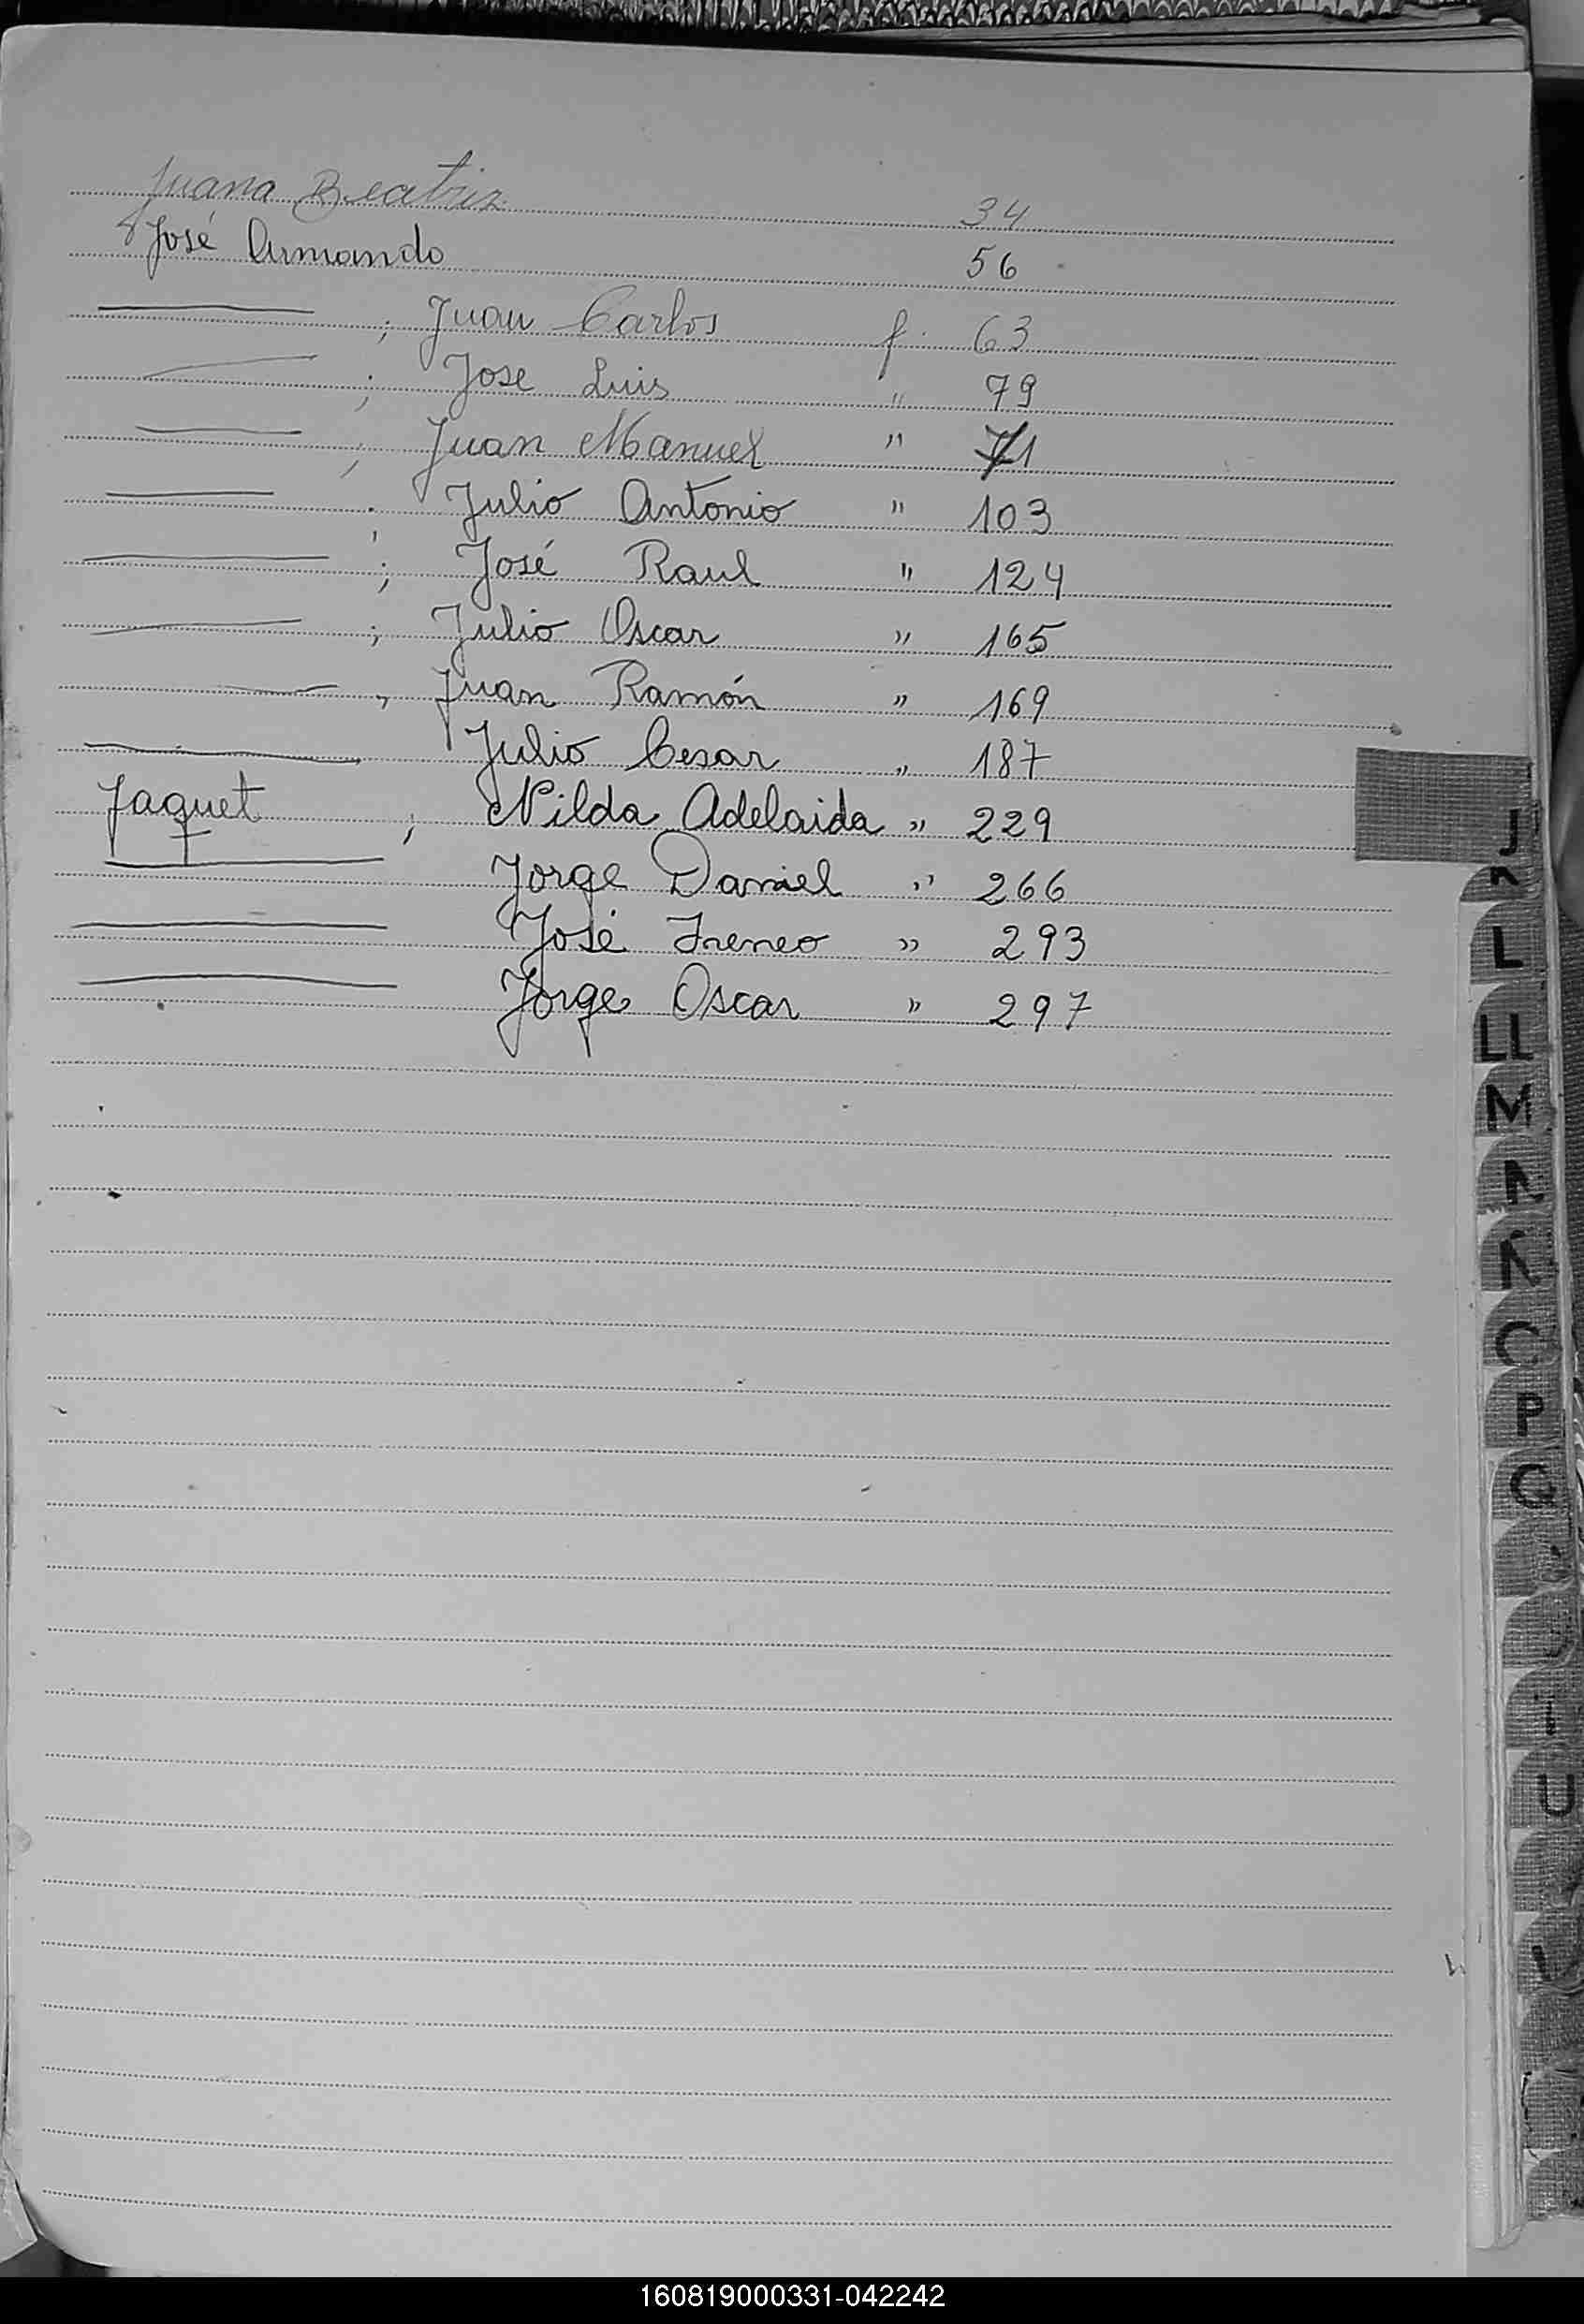 Juana Beatriz 34
José Armando 56
; Juan Carlos f. 63
; Jose Luis " 79
; Juan Manuel " 71
; Julio Antonio " 103
; José Raul " 124
; Julio Oscar " 165
, Juan Ramón " 169
Julio Cesar " 187
Jaquet ; Nilda Adelaida " 229
Jorge Daniel " 266
José Ireneo " 293
Jorge Oscar " 297
J
L
LL
M
P
Q
U
160819000331-042242